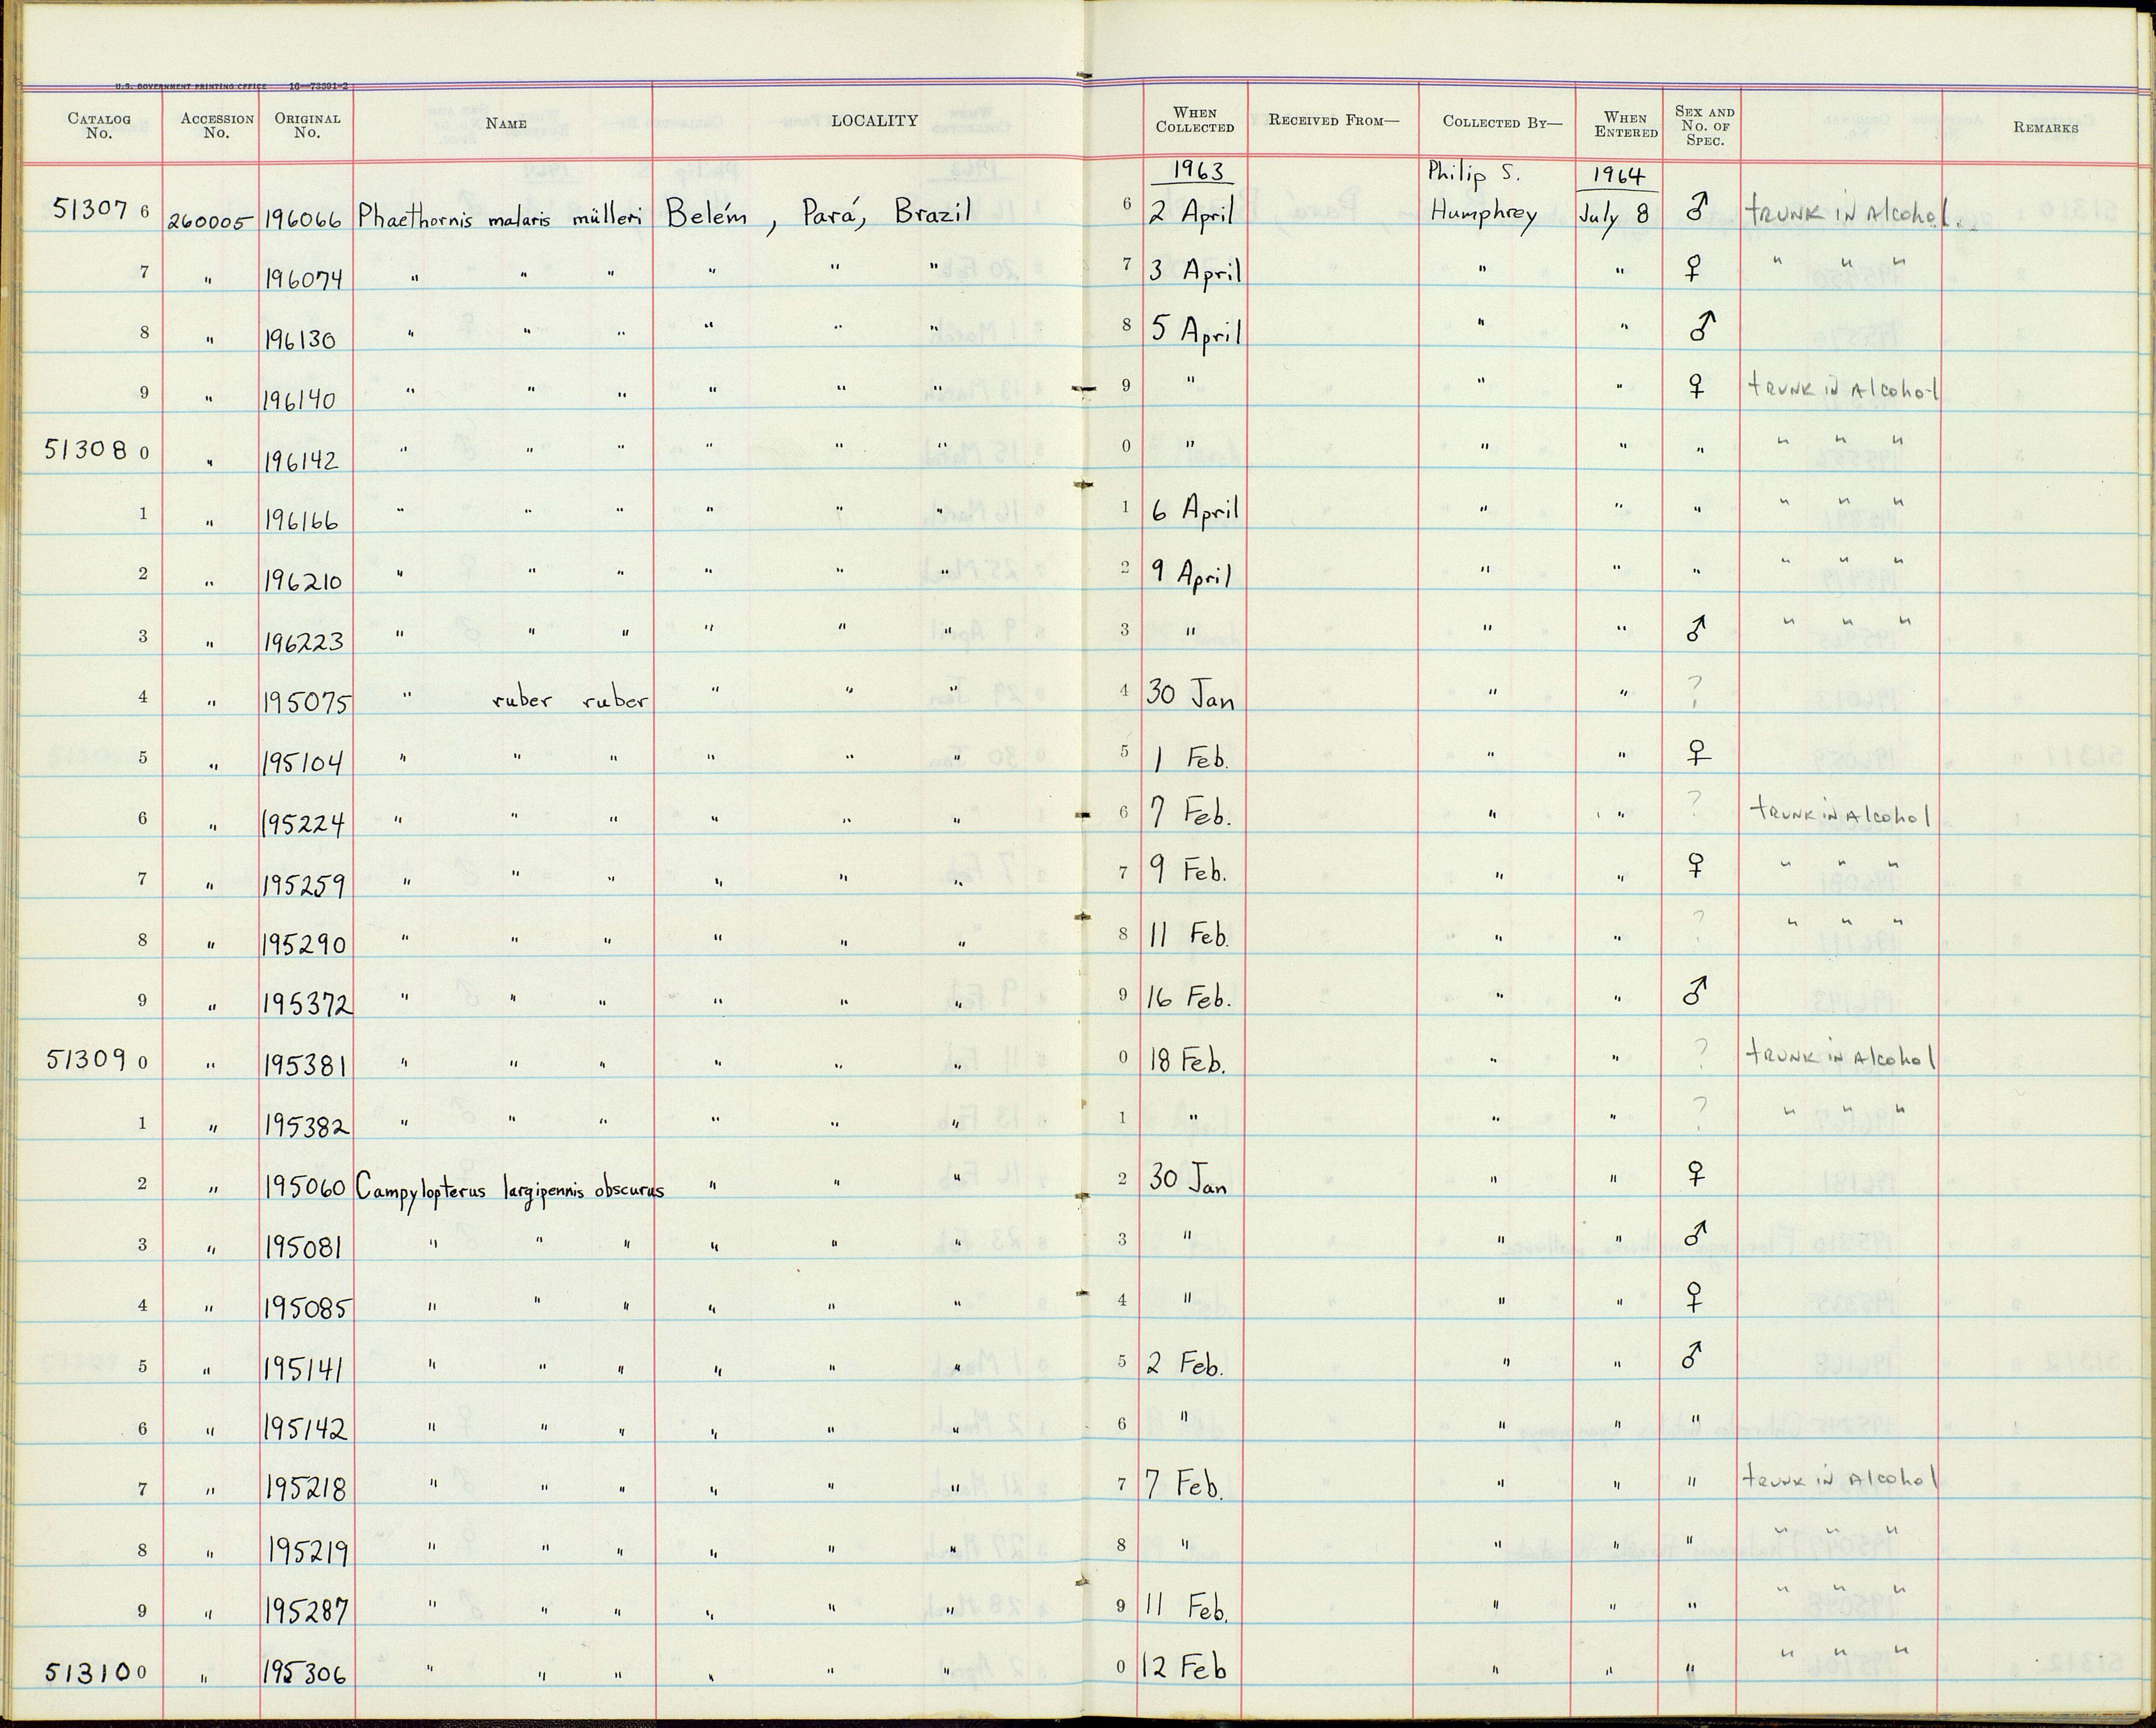 U.S. GOVERNMENT PRINTING OFFICE 16—73391-2
CATALOG No. ACCESSION No. ORIGINAL No. NAME LOCALITY WHEN COLLECTED RECEIVED FROM— COLLECTED BY— WHEN ENTERED SEX AND No. OF SPEC. REMARKS
1963 Philip S. 1964
51307 6 260005 196066 Phaethornis malaris mülleri Belém, Pará, Brazil 6 2 April Humphrey July 8 ♂ trunk in Alcohol
7 " 196074 " " " " " " 7 3 April " " ♀ " " "
8 " 196130 " " " " " " 8 5 April " " ♂
9 " 196140 " " " " " " 9 " " " ♀ trunk in Alcohol
51308 0 " 196142 " " " " " " 0 " " " " " " "
1 " 196166 " " " " " " 1 6 April " " " " " "
2 " 196210 " " " " " " 2 9 April " " " " " "
3 " 196223 " " " " " " 3 " " " ♂ " " "
4 " 195075 " ruber ruber " " " 4 30 Jan " " ?
5 " 195104 " " " " " " 5 1 Feb. " " ♀
6 " 195224 " " " " " " 6 7 Feb. " " ? trunk in Alcohol
7 " 195259 " " " " " " 7 9 Feb. " " ♀ " " "
8 " 195290 " " " " " " 8 11 Feb. " " ? " " "
9 " 195372 " " " " " " 9 16 Feb. " " ♂
51309 0 " 195381 " " " " " " 0 18 Feb. " " ? trunk in Alcohol
1 " 195382 " " " " " " 1 " " " ? " " "
2 " 195060 Campylopterus largipennis obscurus " " " 2 30 Jan " " ♀
3 " 195081 " " " " " " 3 " " " ♂
4 " 195085 " " " " " " 4 " " " ♀
5 " 195141 " " " " " " 5 2 Feb. " " ♂
6 " 195142 " " " " " " 6 " " " "
7 " 195218 " " " " " " 7 7 Feb. " " " trunk in Alcohol
8 " 195219 " " " " " " 8 " " " " " " "
9 " 195287 " " " " " " 9 11 Feb. " " " " " "
51310 0 " 195306 " " " " " " 0 12 Feb " " " " " "